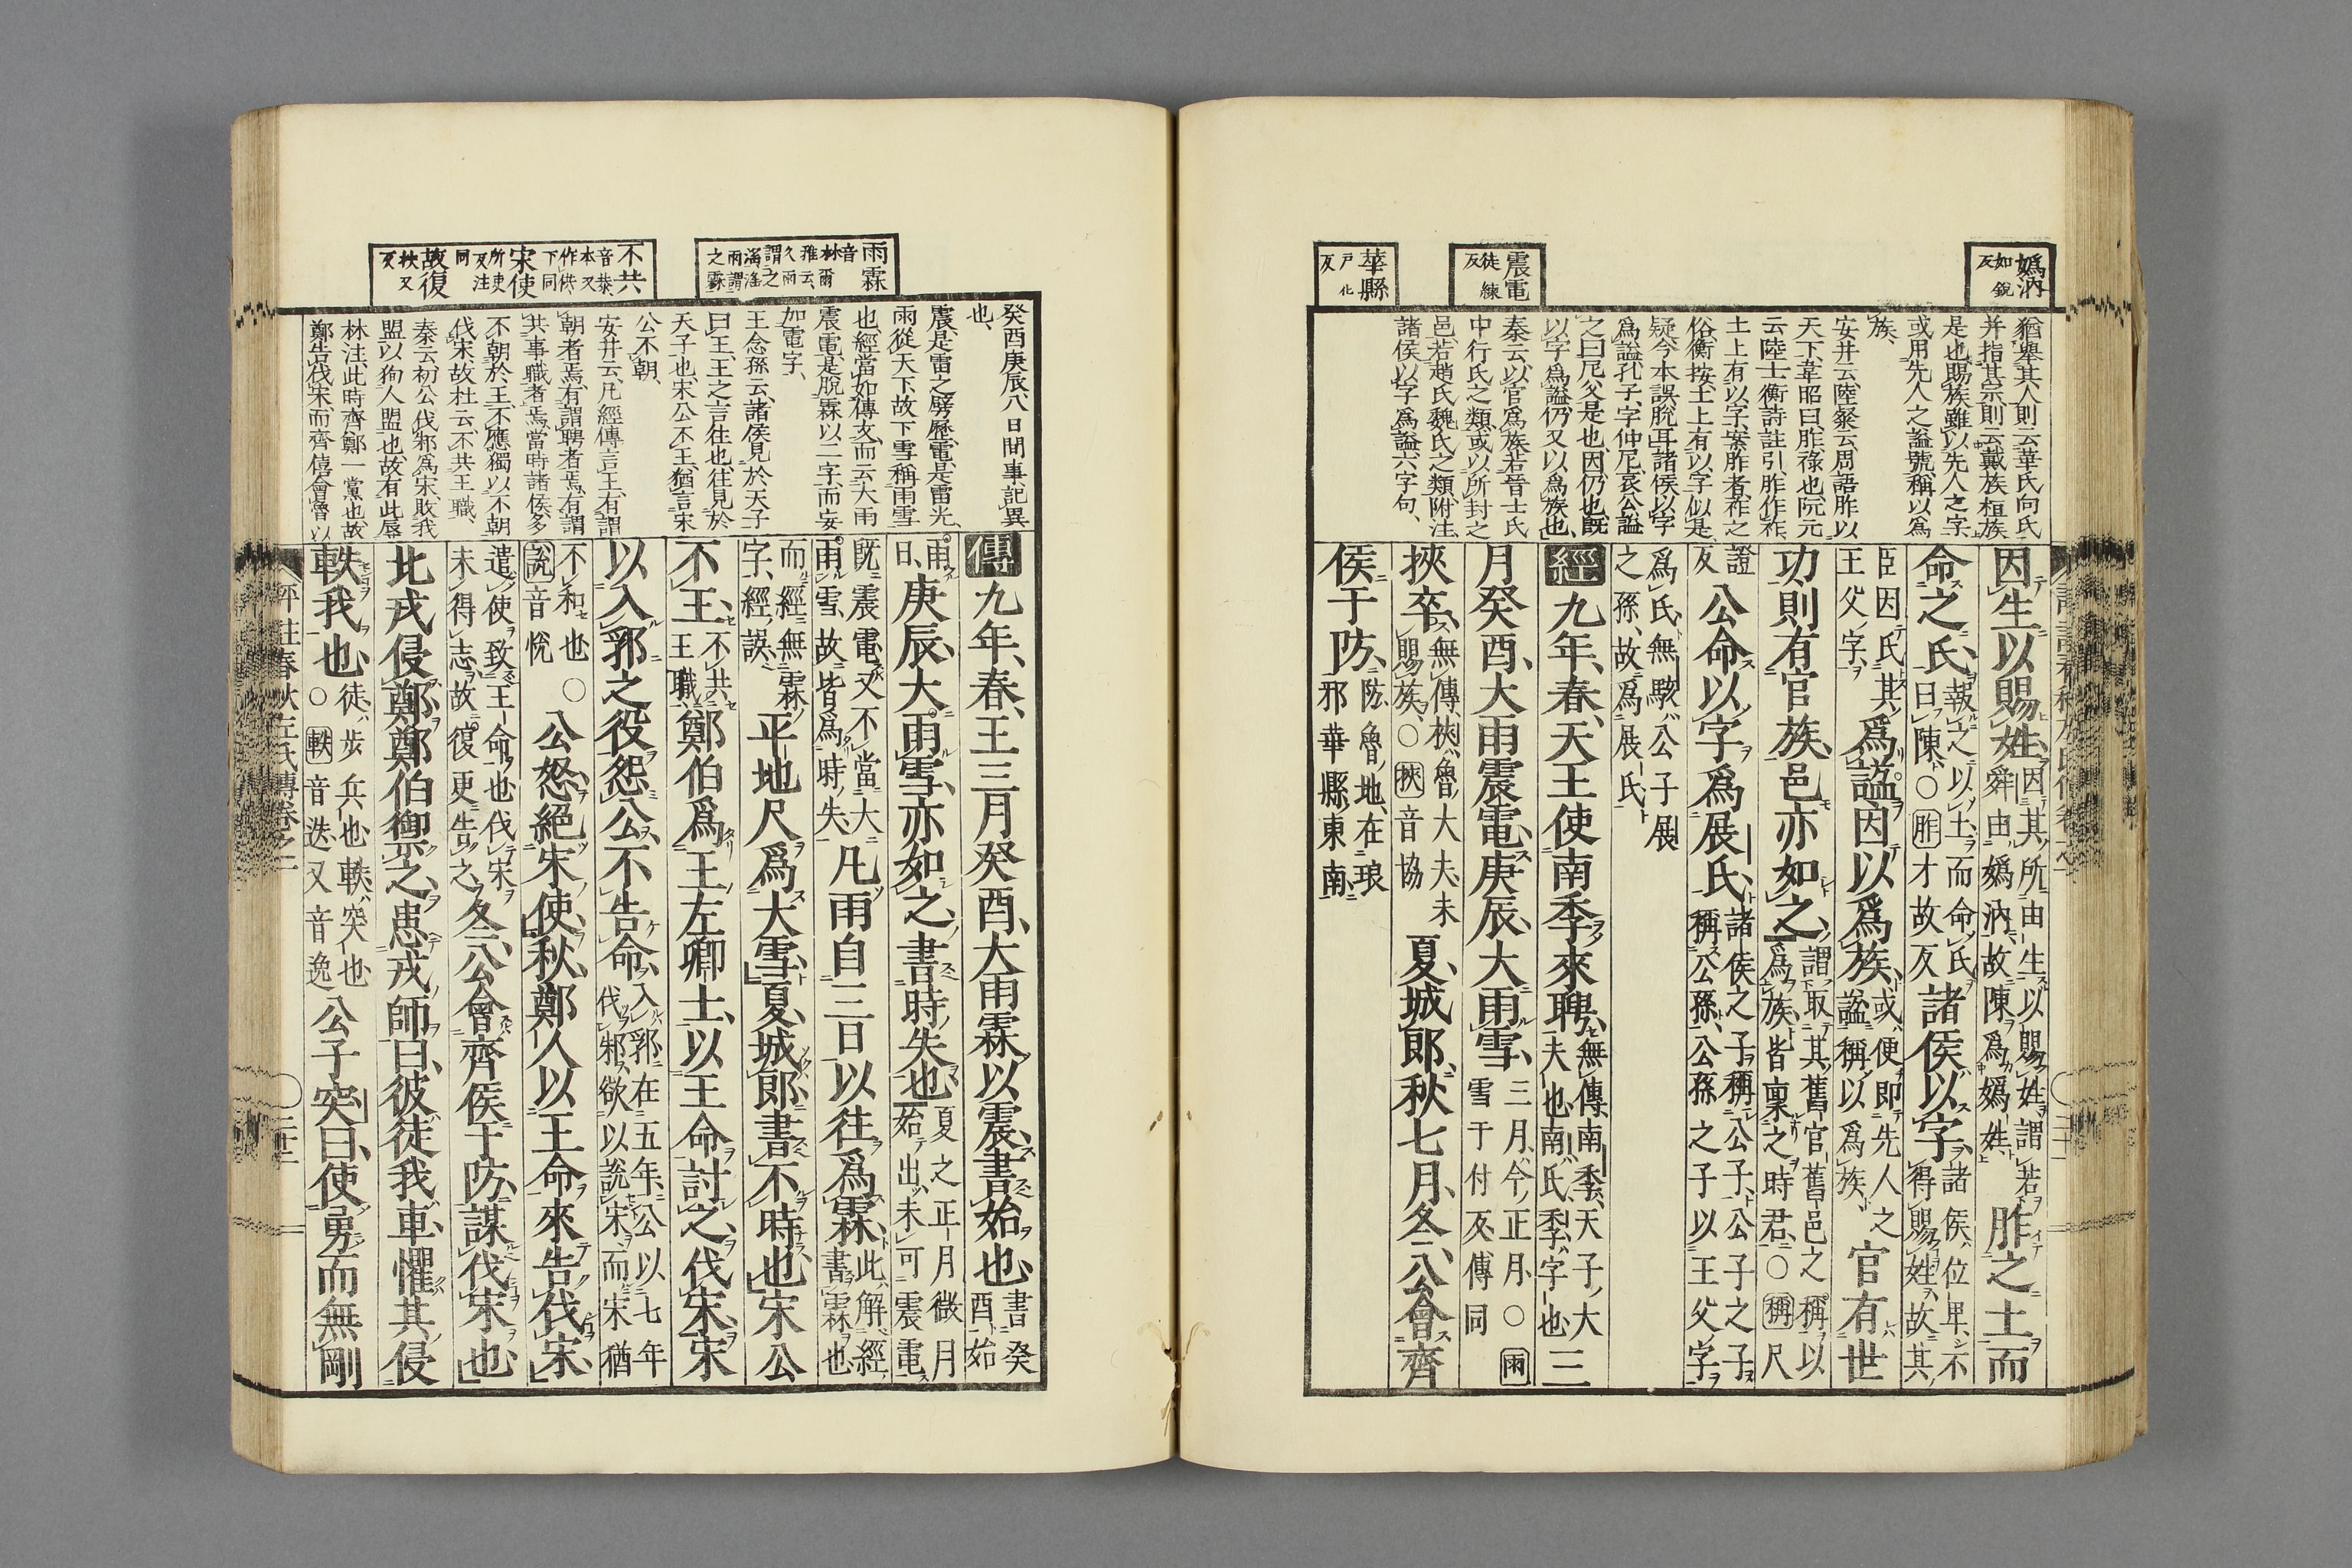 媯汭
如銳
反
震電
徒練
反
華縣
戸化
反
猶舉其人則云華氏向氏
并指其宗則云戴族桓族
是也賜族雖以先人之字
或用先人之謚號稱以爲
族、
安井云、陸粲云、周語胙以
天下、韋昭曰、胙、祿也、阮元
云、陸士衡詩註引、胙作祚、
土上有以字、案胙者祚之
俗、衡按、土上有以字似是、
疑今本誤脫耳、諸侯以字
爲謚、孔子、字仲尼、哀公謚
之曰尼父是也、因仍也、旣
以字爲謚、仍又以爲族也、
秦云、以官爲族、若晉士氏
中行氏之類、或以所封之
邑、若趙氏魏氏之類、附注、
諸侯以字爲謚六字句、
因生以賜姓、因其所由生以賜姓、謂若舜由媯汭、故陳爲媯姓、胙之土而
命之氏、報之以土、而命氏曰陳、○胙才故反諸侯以字、諸侯位卑、不得賜姓、故其
臣因氏其王父字、爲謚、因以爲族、或便即先人之謚稱以爲族、官有世
功、則有官族、邑亦如之、謂取其舊官舊邑之稱以爲族、皆稟之時君、○稱尺
證反公命以字爲展氏、諸侯之子稱公子、公子之子稱公孫、公孫之子以王父字
爲氏、無駭公子展之孫、故爲展氏、
經九年、春、天王使南季來聘、無傳、南季、天子大夫也、南氏、季字也、三
月癸酉、大雨震電、庚辰、大雨雪、三月、今正月、○雨雪于付反、傳同
挾卒、無傳、挾魯大夫、未賜族、○挾音協夏、城郎、秋七月、冬、公會齊
侯于防、防、魯地、在琅邪華縣東南、
雨霖
音林爾
雅云、
久雨
謂之
滛滛
雨謂
之霖
不共
音恭、
本又
作供
下同
宋使
所吏
反注
同
故復
扶又
反
癸酉庚辰、八日間事、記異
也、
震、是雷之劈歷、電、是雷光、
雨從天下、故下雪稱雨雪
也、經當如傳文、而云大雨
震電、是脫霖以二字、而妄
加電字、
王念孫云、諸侯見於天子
曰王、王之言往也、往見於
天子也、宋公不王、猶言宋
公不朝、
安井云、凡經傳言王、有謂
朝者焉、有謂聘者焉、有謂
共事職者焉、當時諸侯多
不朝於王、不應獨以不朝
伐宋、故杜云不共王職、
秦云、初公伐邾爲宋、敗我
盟以狥人盟也、故有此辱
林注、此時齊鄭一黨也、故
鄭告伐宋、而齊僖會魯以
傳九年、春、王三月癸酉、大雨霖以震、書始也、書癸酉始
雨日、庚辰、大雨雪、亦如之、書時失也、夏之正月、微月始出、未可震電、
旣震電、又不當大雨雪、故皆爲時失、凡雨自三日以往爲霖、此解經書霖也
而經無霖字、經誤、平地尺爲大雪、夏、城郎、書不時也、宋公
不王、不共王職、鄭伯爲王左卿士、以王命討之、伐宋、宋
以入郛之役怨公、不告命、入郛在五年、公以七年伐邾、欲以說宋、而宋猶
不和也說音悅○公怒、絕宋使、秋、鄭人以王命來告伐宋、
遣使致王命也、伐宋未得志、故復更告之、冬、公會齊侯于防、謀伐宋也、
北戎侵鄭、鄭伯禦之、患戎師、曰、彼徒我車、懼其侵
軼我也、徒、步兵也、軼、突也○軼音迭又音逸公子突曰、使勇而無剛
評註春秋左氏傳卷之一